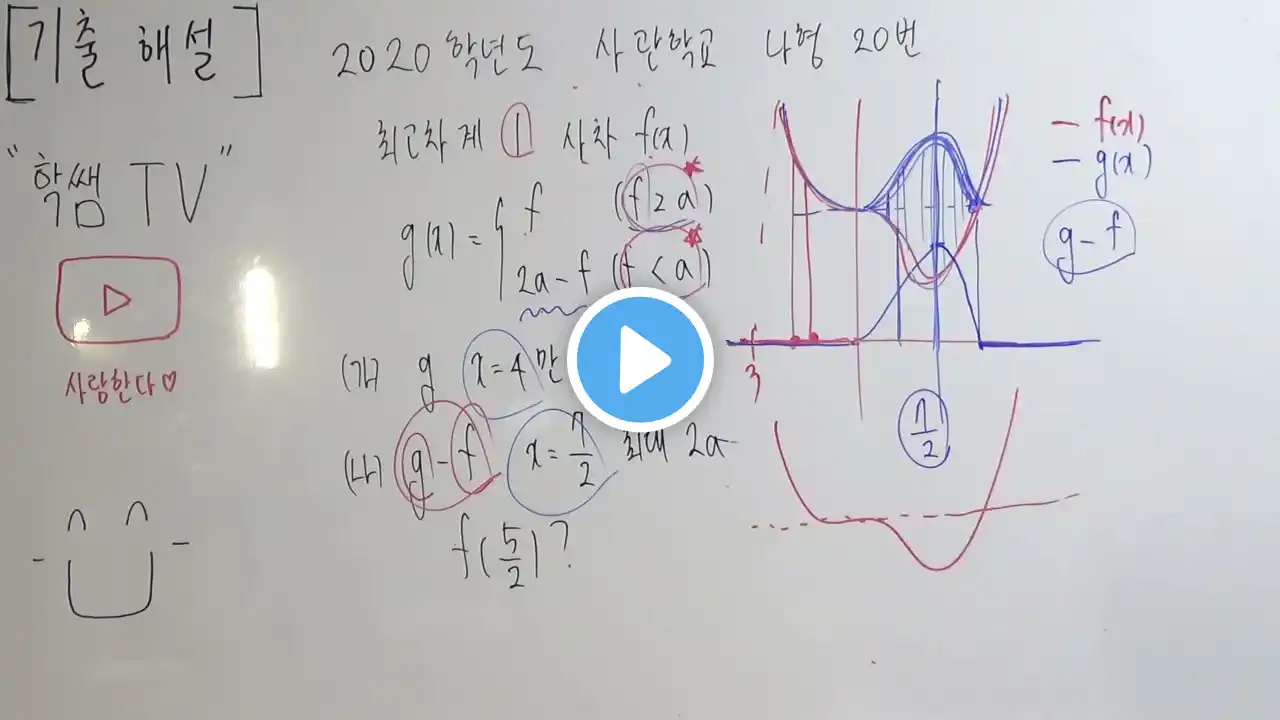 [기출 해설]
2020학년도 사관학교 나형 20번
"학쌤 TV"
사랑한다♡
최고차 계 ① 사차 f(x)
g(x) = { f (f ≥ a)
2a-f (f < a)
(가) g x=4 만
(나) g-f x=7/2 최대 2a
f(5/2)?
- f(x)
- g(x)
g-f
3
7/2